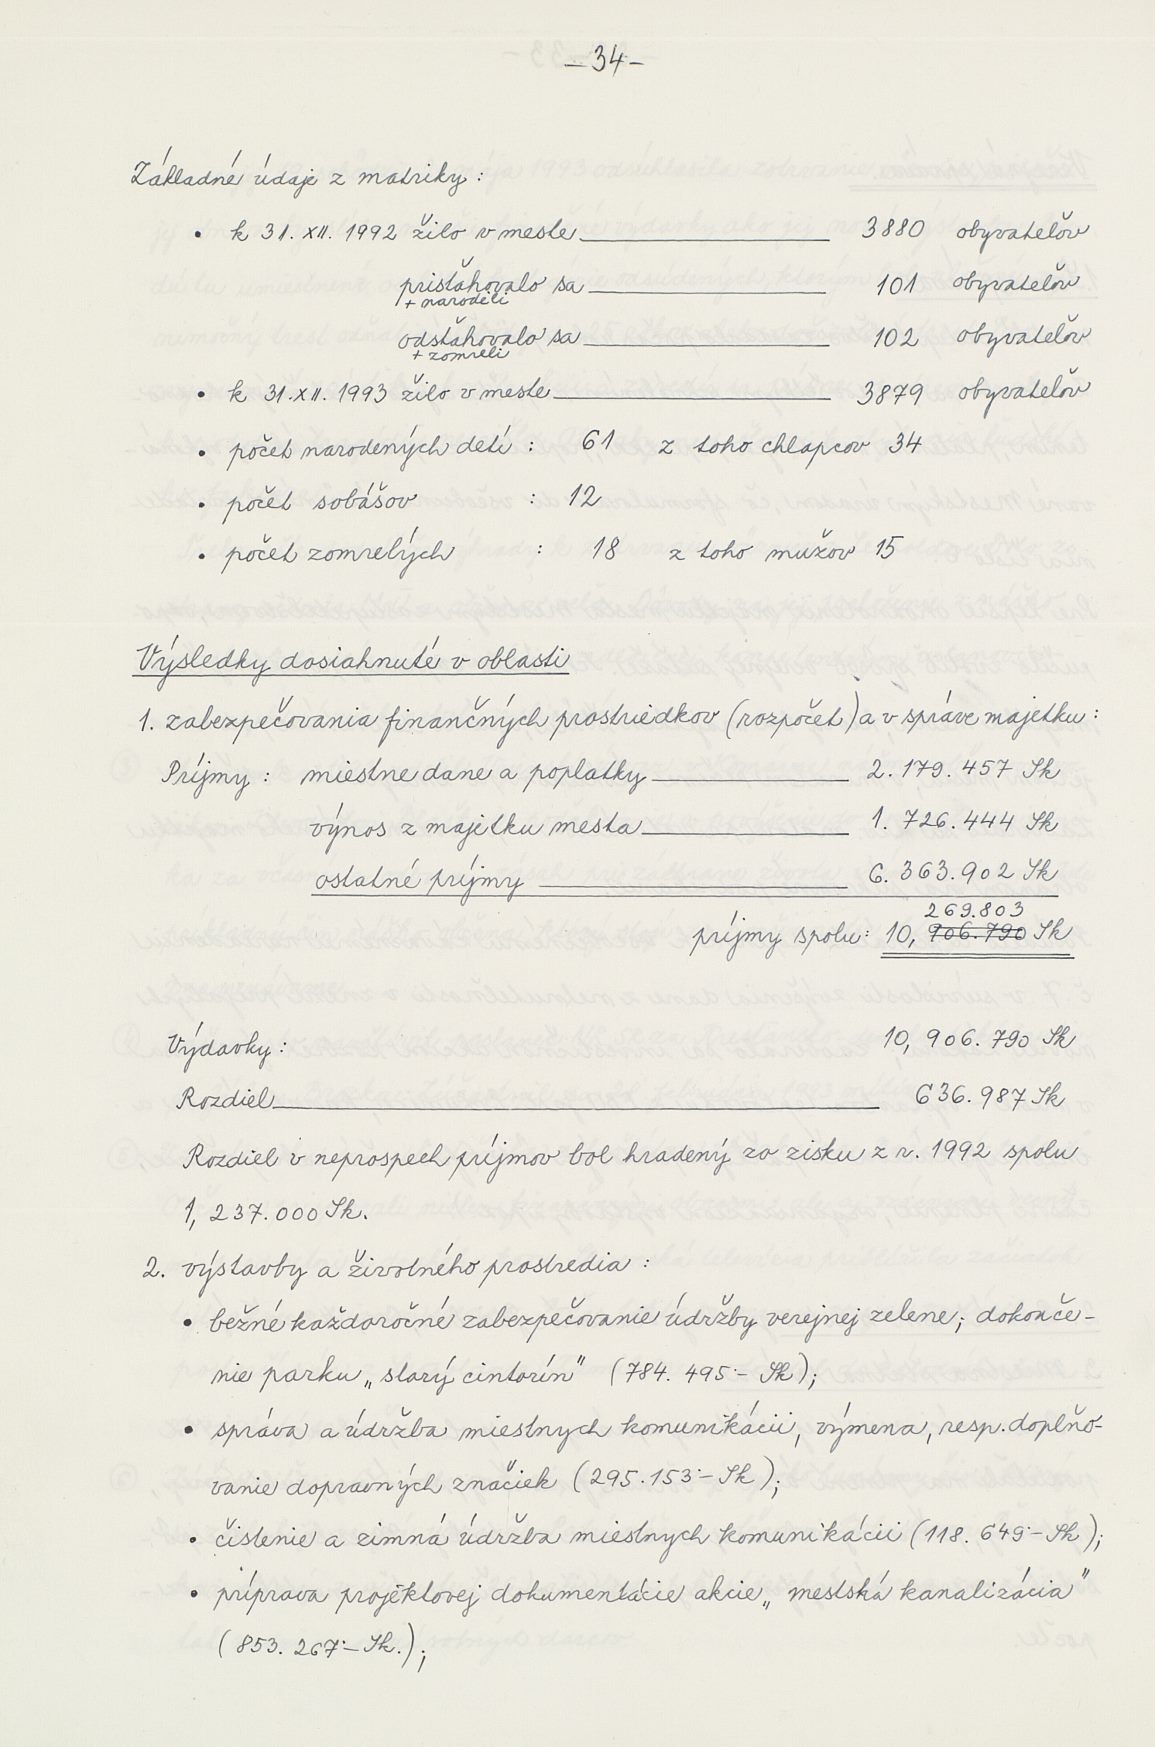 -34-
Základné údaje z matriky :
• k 31. XII. 1992 žilo v meste 3880 obyvateľov
prisťahovalo sa 101 obyvateľov
+ narodeli
odsťahovalo sa 102 obyvateľov
+ zomreli
• k 31. XII. 1993 žilo v meste 3879 obyvateľov
• počet narodených detí : 61 z toho chlapcov 34
• počet sobášov : 12
• počet zomrelých : 18 z toho mužov 15
Výsledky dosiahnuté v oblasti
1. zabezpečovania finančných prostriedkov (rozpočet) a v správe majetku :
Príjmy : miestne dane a poplatky 2. 179. 457 Sk
výnos z majetku mesta 1. 726. 444 Sk
ostatné príjmy 6. 363. 902 Sk
269.803
príjmy spolu: 10, 906.790 Sk
Výdavky : 10, 906. 790 Sk
Rozdiel 636. 987 Sk
Rozdiel v neprospech príjmov bol hradený zo zisku z r. 1992 spolu
1, 237. 000 Sk.
2. výstavby a životného prostredia :
• bežné každoročné zabezpečovanie údržby verejnej zelene; dokonče-
nie parku „starý cintorín" (784. 495.- Sk);
• správa a údržba miestnych komunikácii, výmena, resp. doplňo-
vanie dopravných značiek (295. 153.- Sk);
• čistenie a zimná údržba miestnych komunikácii (118. 649.- Sk);
• príprava projektovej dokumentácie akcie „mestská kanalizácia"
(853. 267.- Sk.);